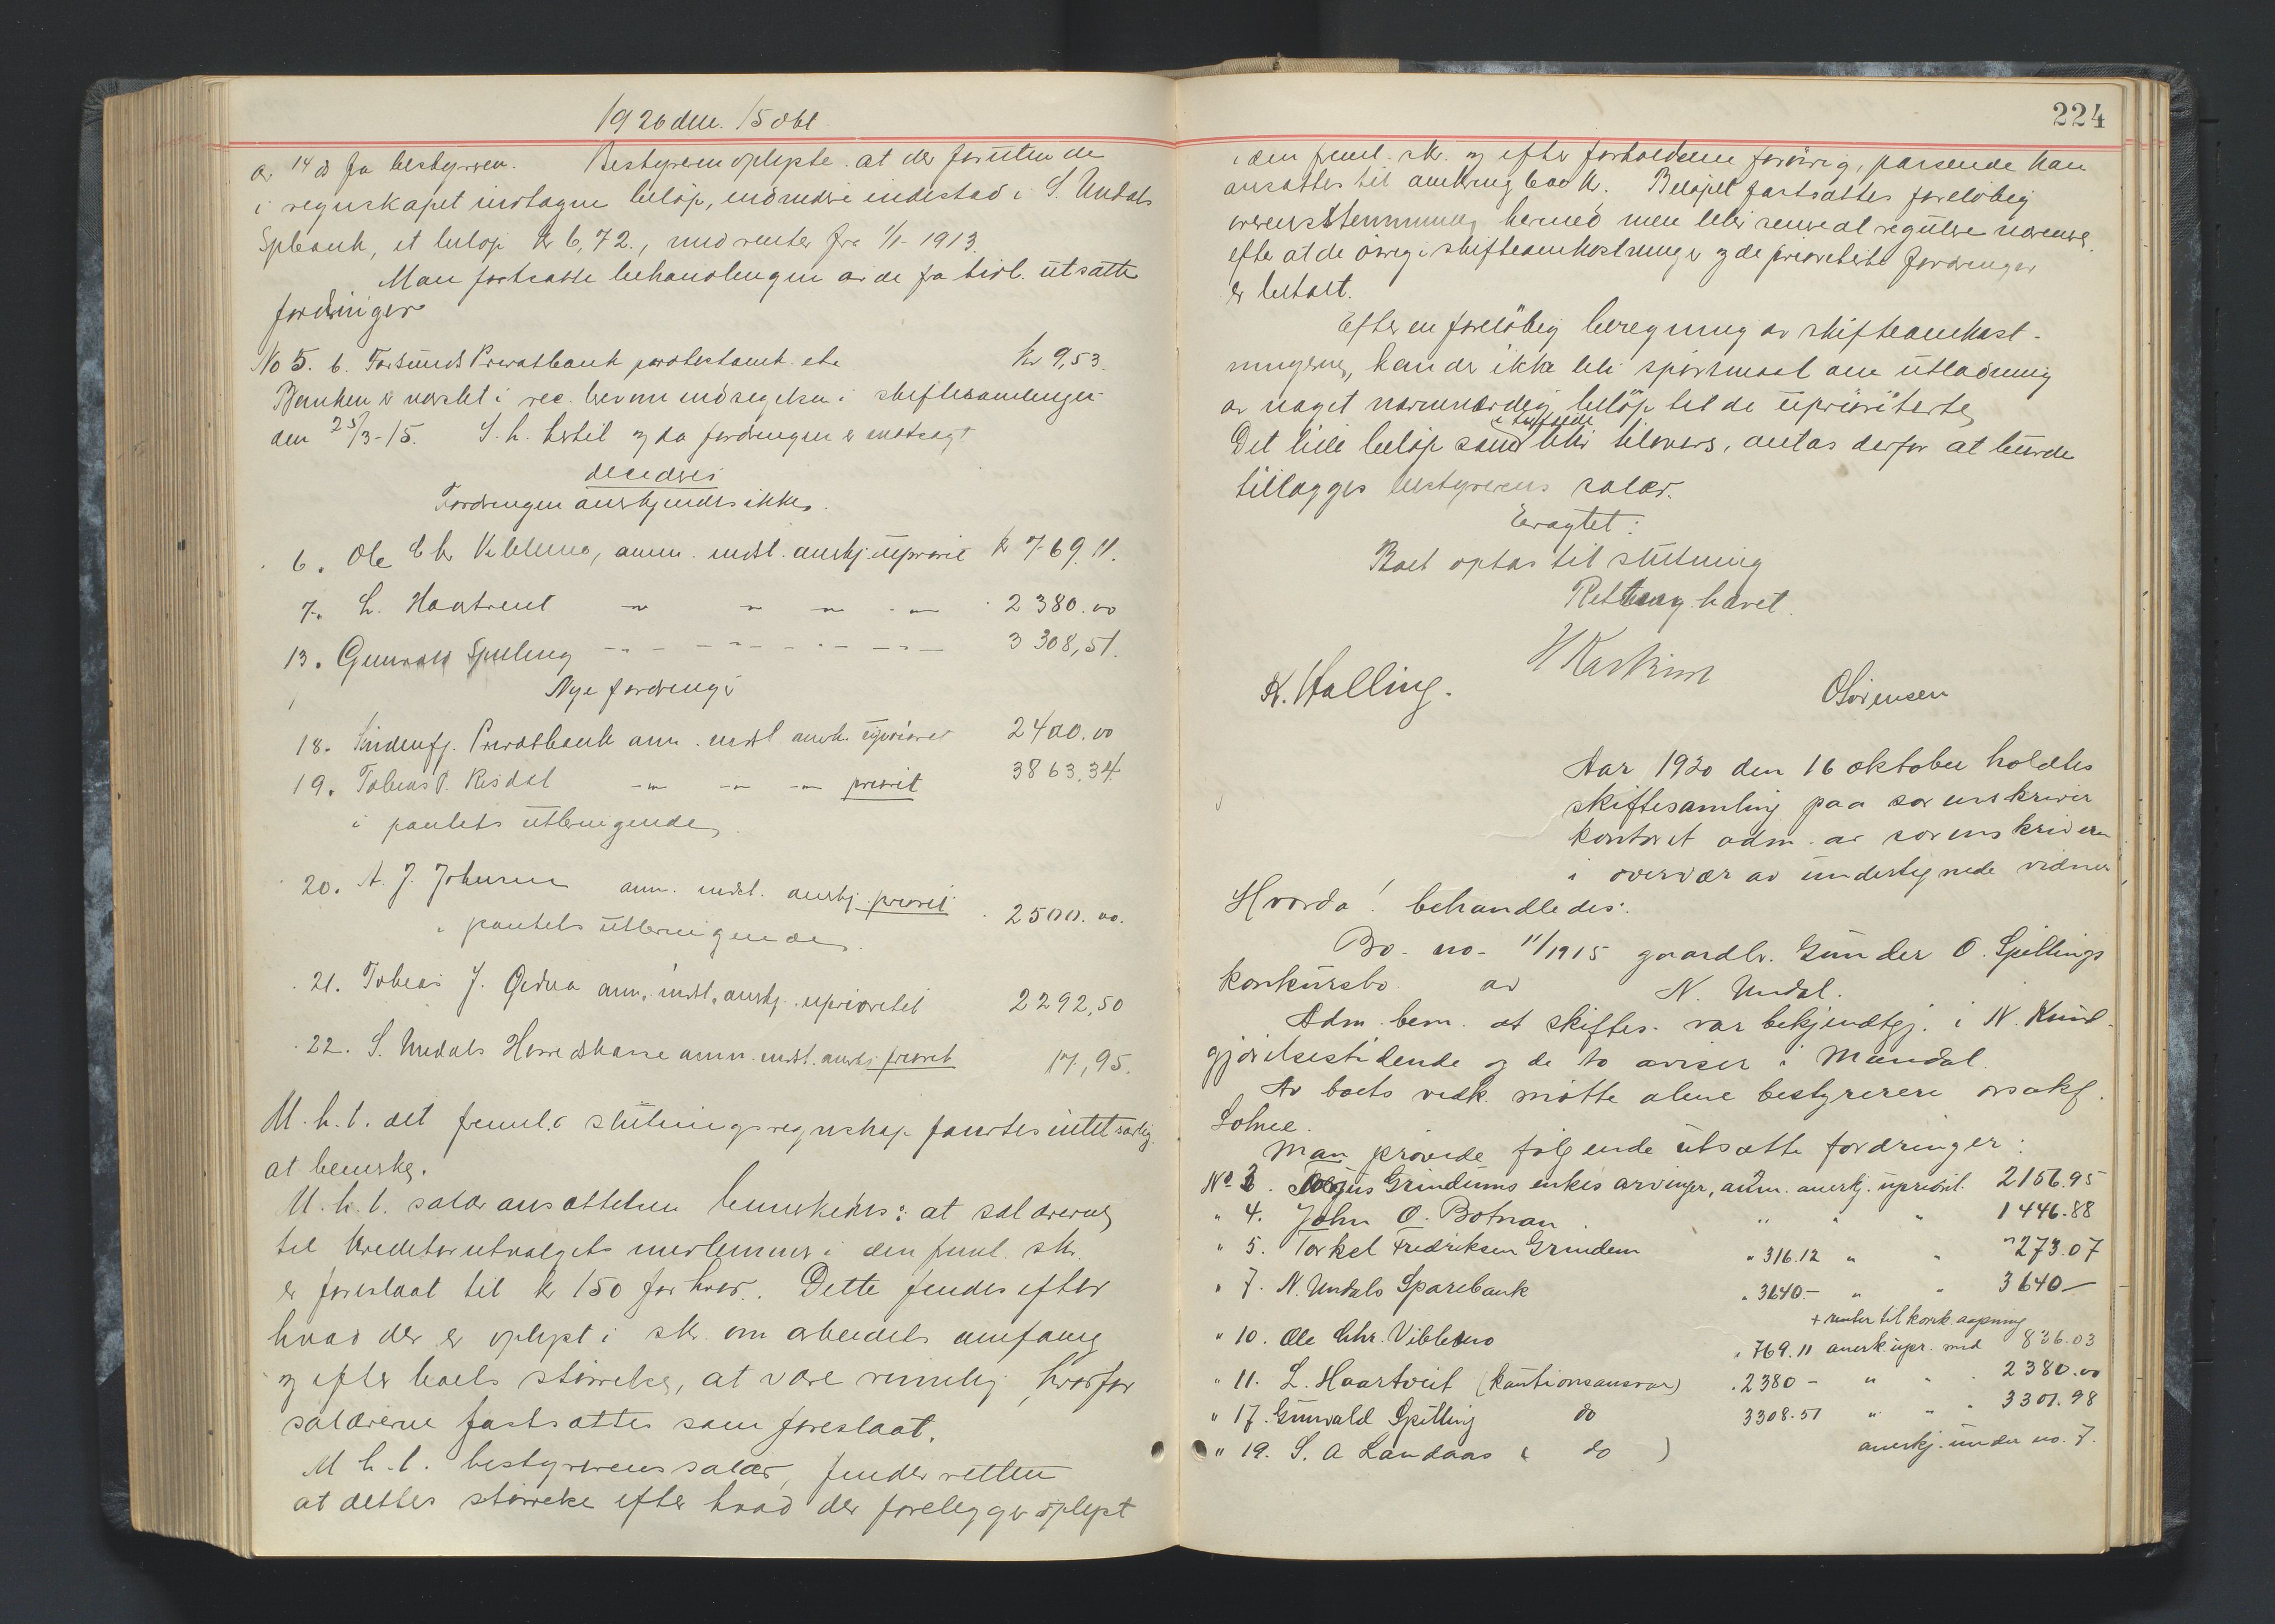 1920 den 15 okt
av 14 ds fra bestyreren. Bestyreren oplyste at der foruten de
i regnskapet indtagne beløp, endvidere indestod i S. Undals
Spbank, et beløp kr 6,72., med renter fra 1/1-1913.
Man fortsatte behandlingen av de fra tidl. utsatte
fordringer
No 5. b. Farsunds Privatbank protestomk. etc kr 9,53.
Banken er varslet i rec. brev om indsigelsen i skiftesamlingen
den 25/3-15. S. h. hertil og da fordringen er motsagt
decideres
Fordringen anerkjendes ikke.
6. Ole Chr Vibblemo, anm. indst. anerkj. uprorit kr 769.11.
7. L. Haartveit 2380.00
13. Gunvald Spilling 3308,51.
Nye fordringer
18. Søndenfj. Privatbank anm. indst anerk. uprioriter 2400.00
19. Tobias T. Risdal priorit 3863.34
i pantets utbringende
20. A. J. Johnsen anm. indst. anerkj. priorit 2500.00.
i pantets utbringende.
21. Tobias J. anm. indst. anerkj. uprioritet 2292,50
22. S. Undals Herredskasse anm. indst. anerkj. priorit 17,95.
M. h. t. det freml. slutningsregnskap fandtes intet særlig
at bemerke.
M. h. t. salæransættelsen bemerkedes: at salærerne
til kreditorutvalgets medlemmer i den freml. skr.
er foreslaat til kr 150 for hver. Dette findes efter
hvad der er oplyst i skr. om arbeidets omfang
og efter boets størrelse, at være rimelig, hvorfor
salærerne fastsættes som foreslaat.
M h. t. bestyrerens salær, finder retten
at dettes størrelse efter hvad der forelægges oplyst
224
i den freml. skr. og efter forholdene forøvrig, passende kan
ansættes til omkring 600 kr. Beløpet fastsættes foreløbig
overensstemmende hermed men blir senere at regulere nærmere
efter at de øvrige skifteomkostninger og de prioriterte fordringer
er betalt.
Efter en foreløbig beregning av skifteomkost-
ningerne, kan der ikke bli spørsmaal om utlodning
av noget nævneværdig beløp til de uprioriterte
i tilfælde
Det lille beløp som blir tilovers, antas derfor at burde
tillægges bestyrerens salær.
Eragtet:
Boet optas til slutning
Retten hævet.
K. Halling. OSørensen
Aar 1920 den 16 oktober holdtes
skiftesamling paa sorenskriver
kontoret adm. av sorenskriveren
i overvær av undertegnede vidner
Hvorda! behandledes:
Bo. no- 11/1915 gaardbr. Gunder O. Spillings
konkursbo av N. Undal.
Adm. bem. at skiftes. var bekjendtgj. i N. Kund-
gjørelsestidende og de to aviser i Mandal.
Av boets vedk. møtte alene bestyreren o.r.sakf.
Lohne.
Man prøvede følgende utsatte fordringer:
No 3. Grindums enkes arvinger, anm. anerkj. upriorit. 2156.95
" 4. John O. Botnan " " " 1446.88
" 5. Torkel Fredriksen Grindem " 316.12 " " 273.07
" 7. N. Undals Sparebank " 3640.- " " 3640-
+ renter til konk.aapning
" 10. Ole Chr. Vibblemo " 769.11 anerk. upr. med 836.03
" 11. L. Haartveit (kautionsansvar) " 2380 - " " " 2380.00
" 17. Gunvald Spilling do 3308.51 " " " 3301.98
" 19. S. A Landaas ( do ) anerkj. under no. 7.